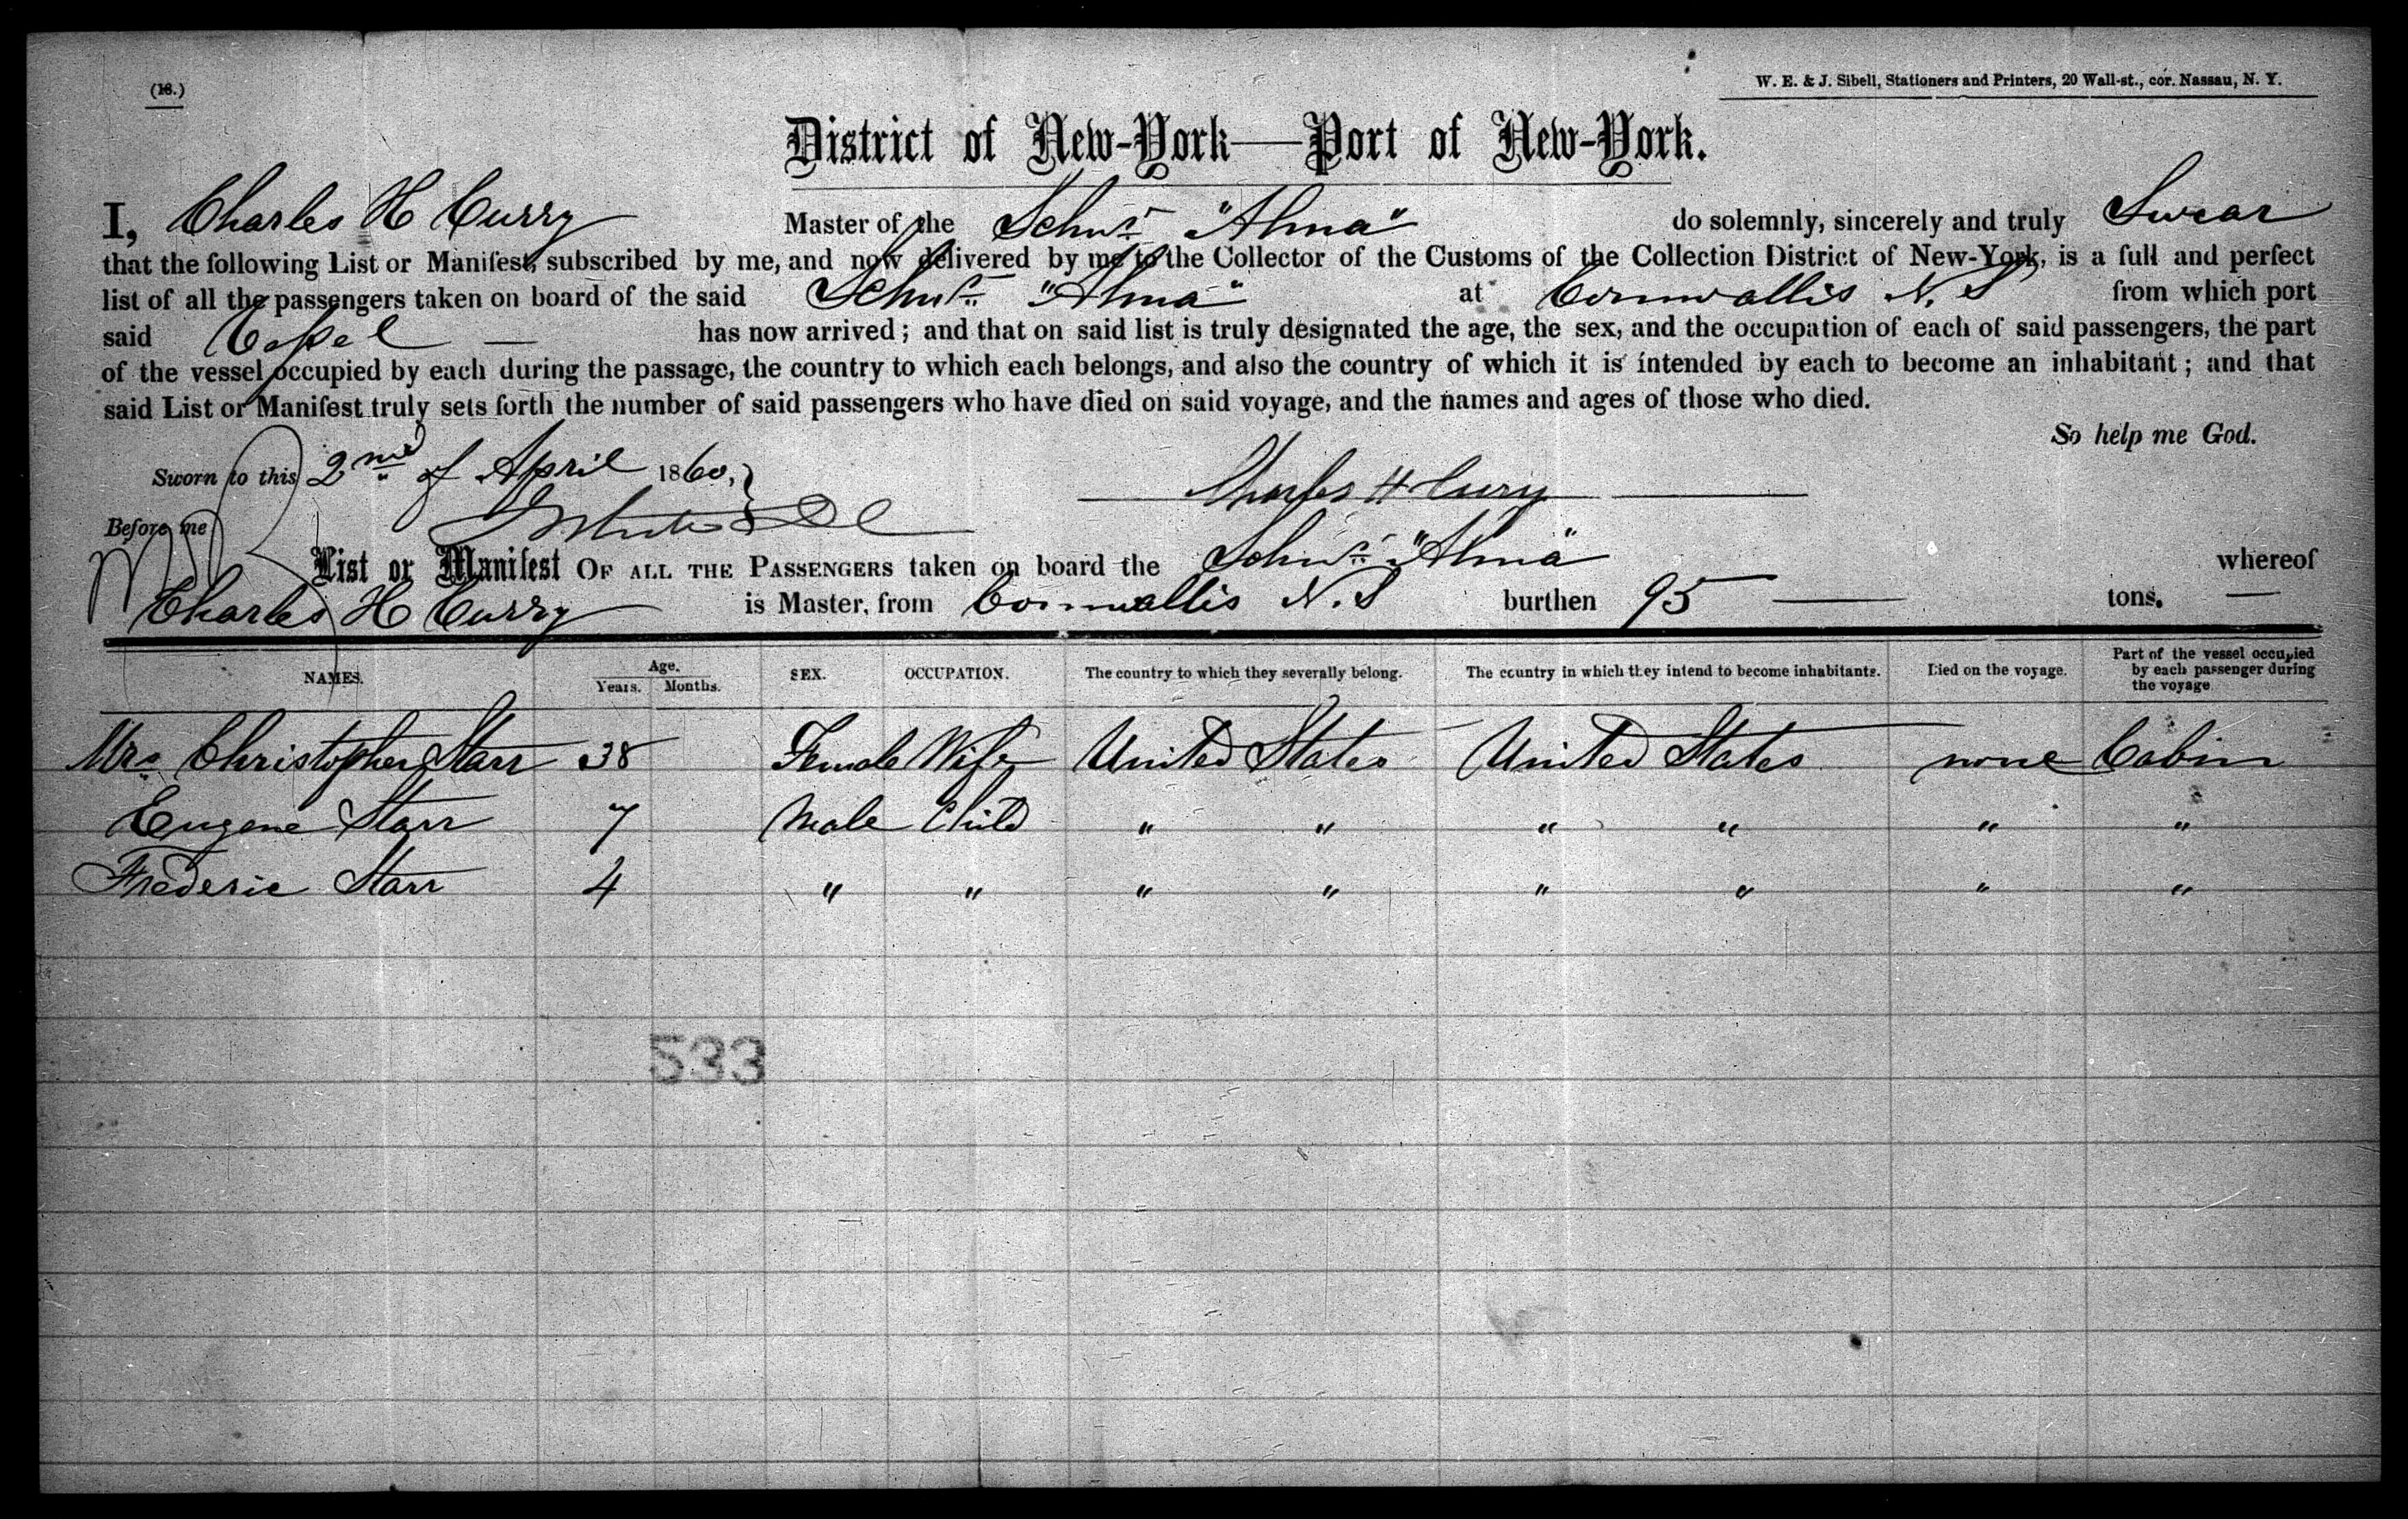 (18.)
W. E. & J. Sibell, Stationers and Printers, 20 Wall-st., cor. Nassau, N. Y.
District of New-York—Port of New-York.
I, Charles H Curry Master of the Schnr "Alma" do solemnly, sincerely and truly Swear
that the following List or Manifest, subscribed by me, and now delivered by me to the Collector of the Customs of the Collection District of New-York, is a full and perfect
list of all the passengers taken on board of the said Schnr. "Alma" at Cornwallis N. S from which port
said Vessel — has now arrived; and that on said list is truly designated the age, the sex, and the occupation of each of said passengers, the part
of the vessel occupied by each during the passage, the country to which each belongs, and also the country of which it is intended by each to become an inhabitant; and that
said List or Manifest truly sets forth the number of said passengers who have died on said voyage, and the names and ages of those who died.
So help me God.
Sworn to this 2nd of April 1860,
Charles H Cury
Before me
List or Manifest OF ALL THE PASSENGERS taken on board the Schnr. "Alma" whereof
Charles H Curry is Master, from Cornwallis N. S burthen 95 — tons. —
NAMES. Age. Years. Months. SEX. OCCUPATION. The country to which they severally belong. The country in which they intend to become inhabitants. Died on the voyage. Part of the vessel occupied by each passenger during the voyage
Mrs Christopher Starr 38 Female Wife United States United States none Cabin
Eugene Starr 7 Male Child " " " " " "
Frederic Starr 4 " " " " " " " "
533